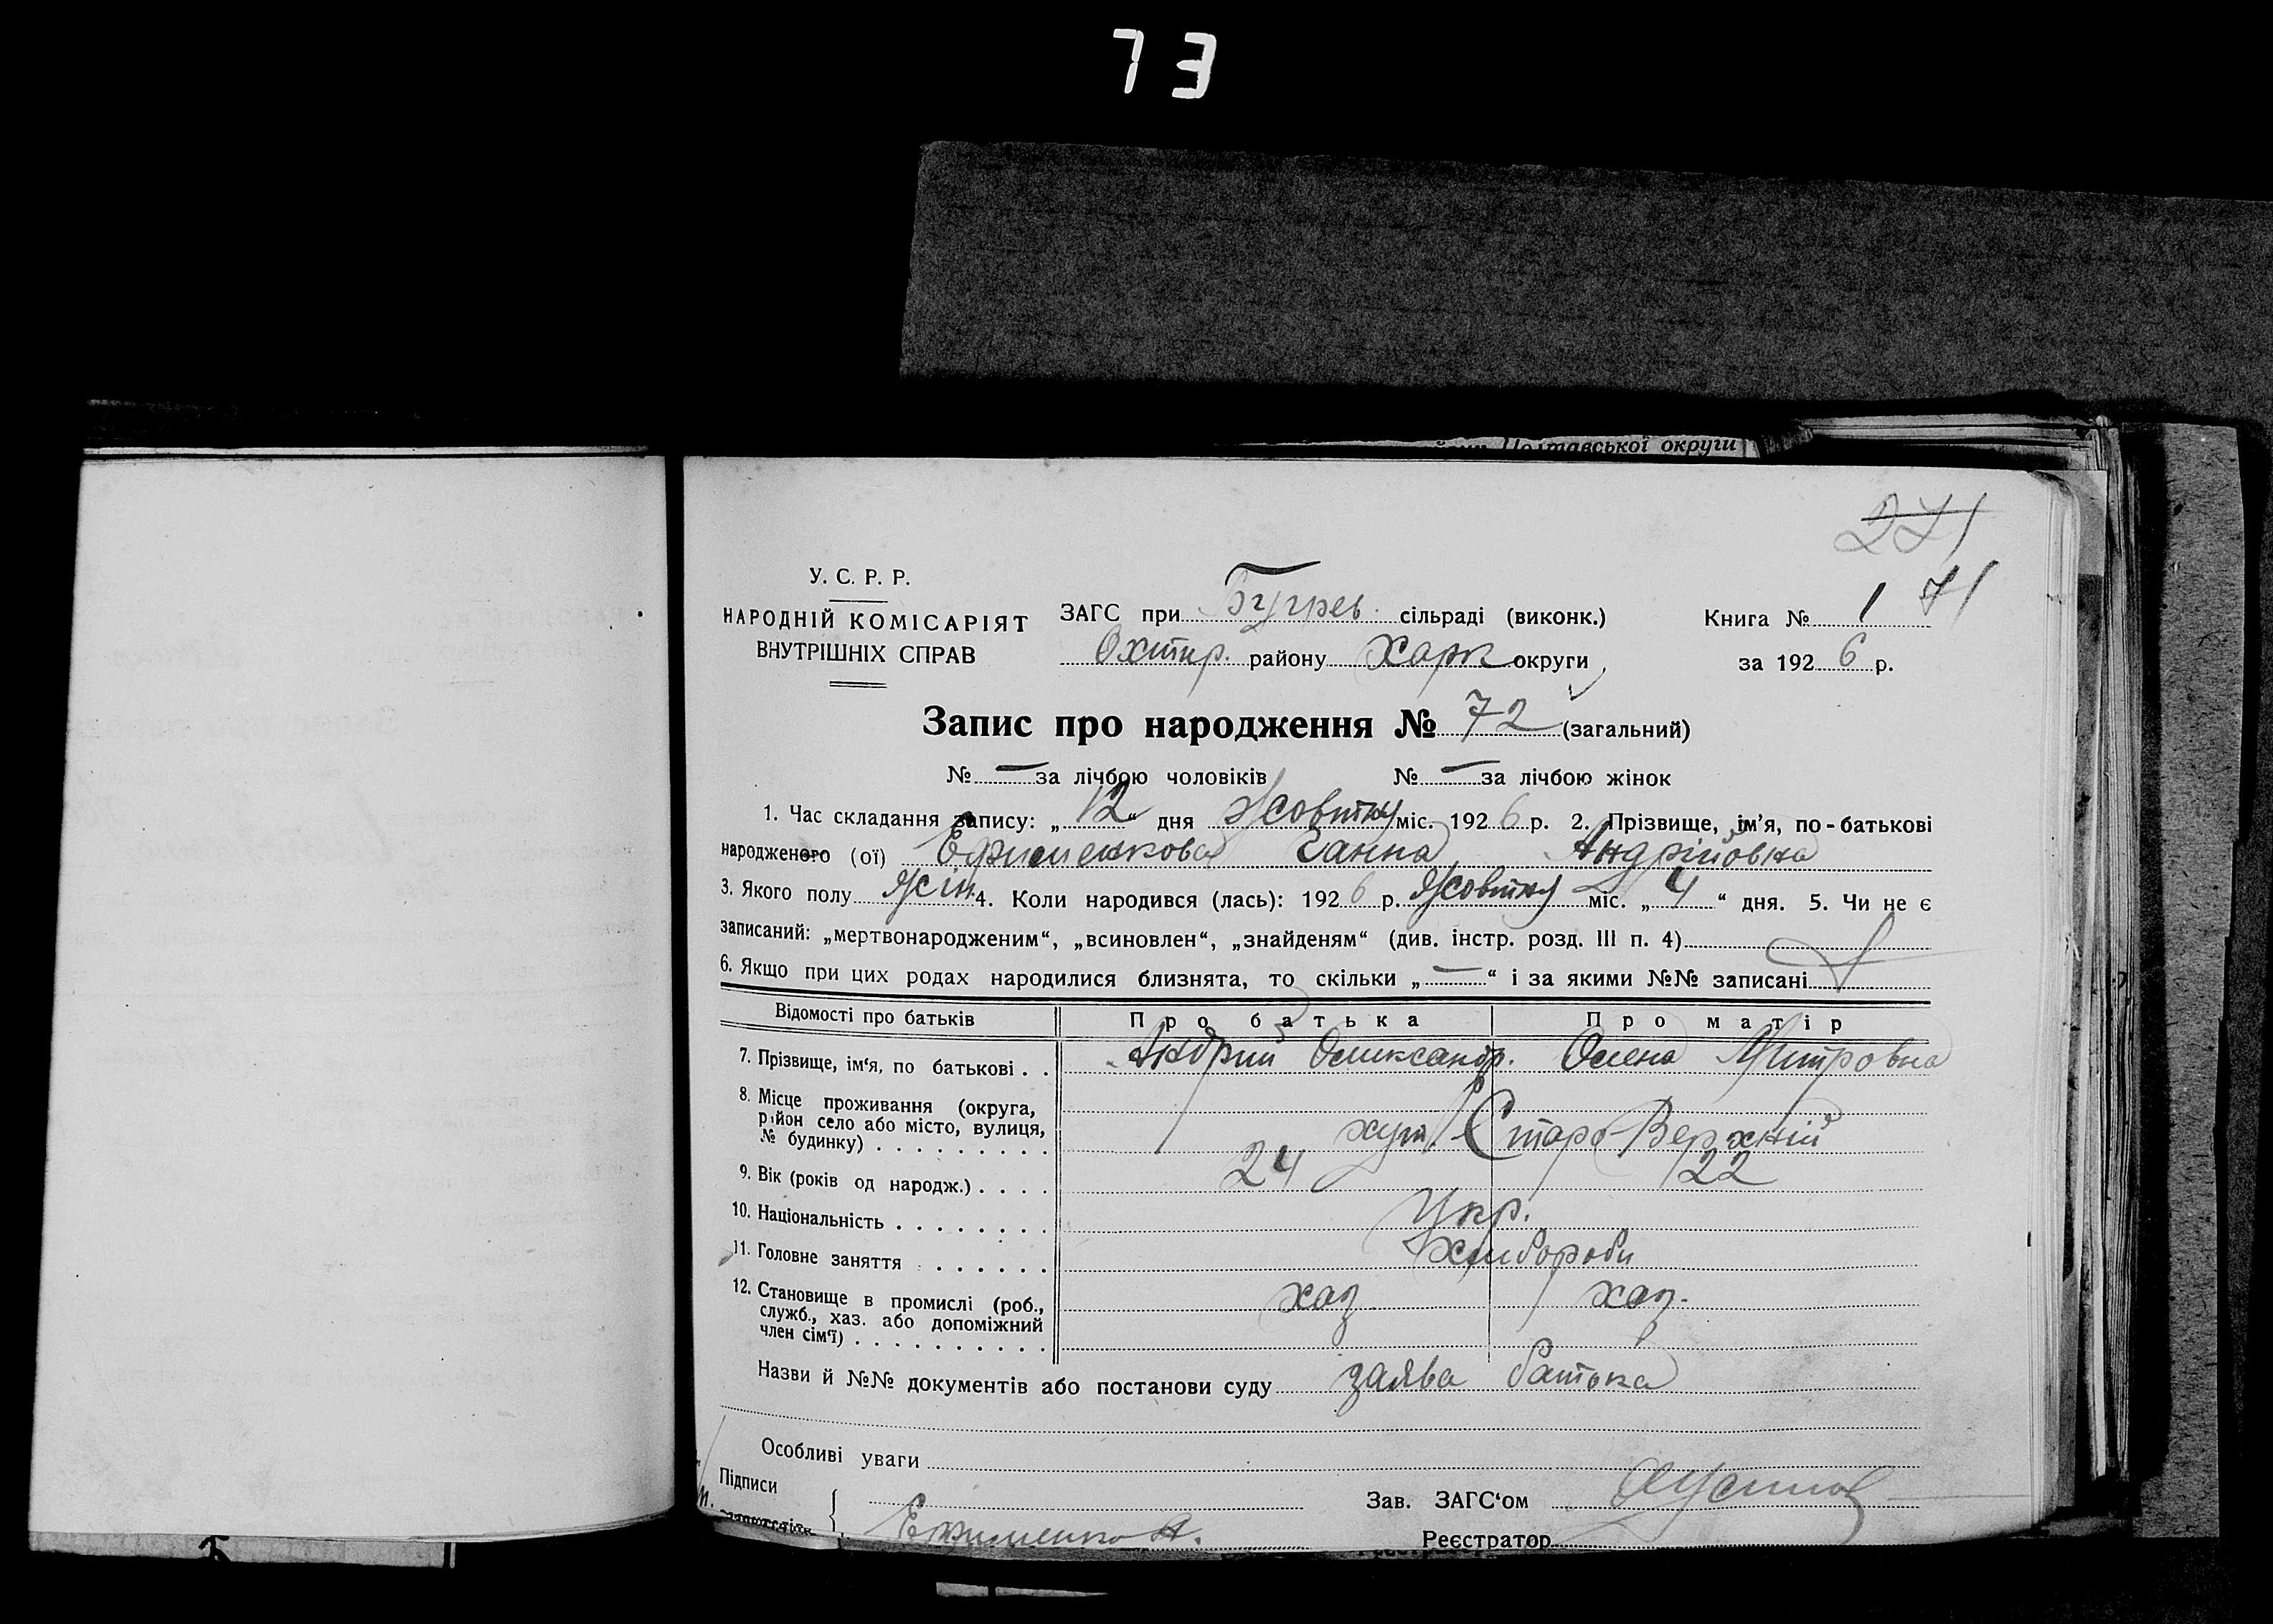 73
Полтавської округи
271
71
У. С. Р. Р.
НАРОДНІЙ КОМІСАРІЯТ
ВНУТРІШНІХ СПРАВ
ЗАГС при Бугрев. сільраді (виконк.)
Охтир. району Харк округи
Книга № 1
за 1926 р.
Запис про народження № 72 (загальний)
№ — за лічбою чоловіків № — за лічбою жінок
1. Час складання запису: „12“ дня Жовтня міс. 1926 р. 2. Прізвище, ім’я, по-батькові
народженого (ої) Ефименкова Ганна Андрійовна
3. Якого полу жін. 4. Коли народився (лась): 1926 р. Жовтня міс. „4“ дня. 5. Чи не є
записаний: „мертвонародженим“, „всиновлен“, „знайденям“ (див. інстр. розд. III п. 4)
6. Якщо при цих родах народилися близнята, то скільки „—“ і за якими №№ записані
Відомості про батьків Про батька Про матір
7. Прізвище, ім‘я, по батькові . . Андрий Олександр. Олена Митровна
8. Місце проживання (округа,
район село або місто, вулиця,
№ будинку) . . . . . . . . . хут. Старо-Верхній
9. Вік (років од народж.) . . . . 24 22
10. Національність . . . . . . . . Укр.
11. Головне заняття . . . . . . Хлибороби
12. Становище в промислі (роб.,
служб., хаз. або допоміжний
член сім‘ї) . . . . . . . . . . хаз хаз.
Назви й №№ документів або постанови суду заява батька
Особливі уваги
Підписи
Зав. ЗАГС‘ом
Ефименко А.
Реєстратор